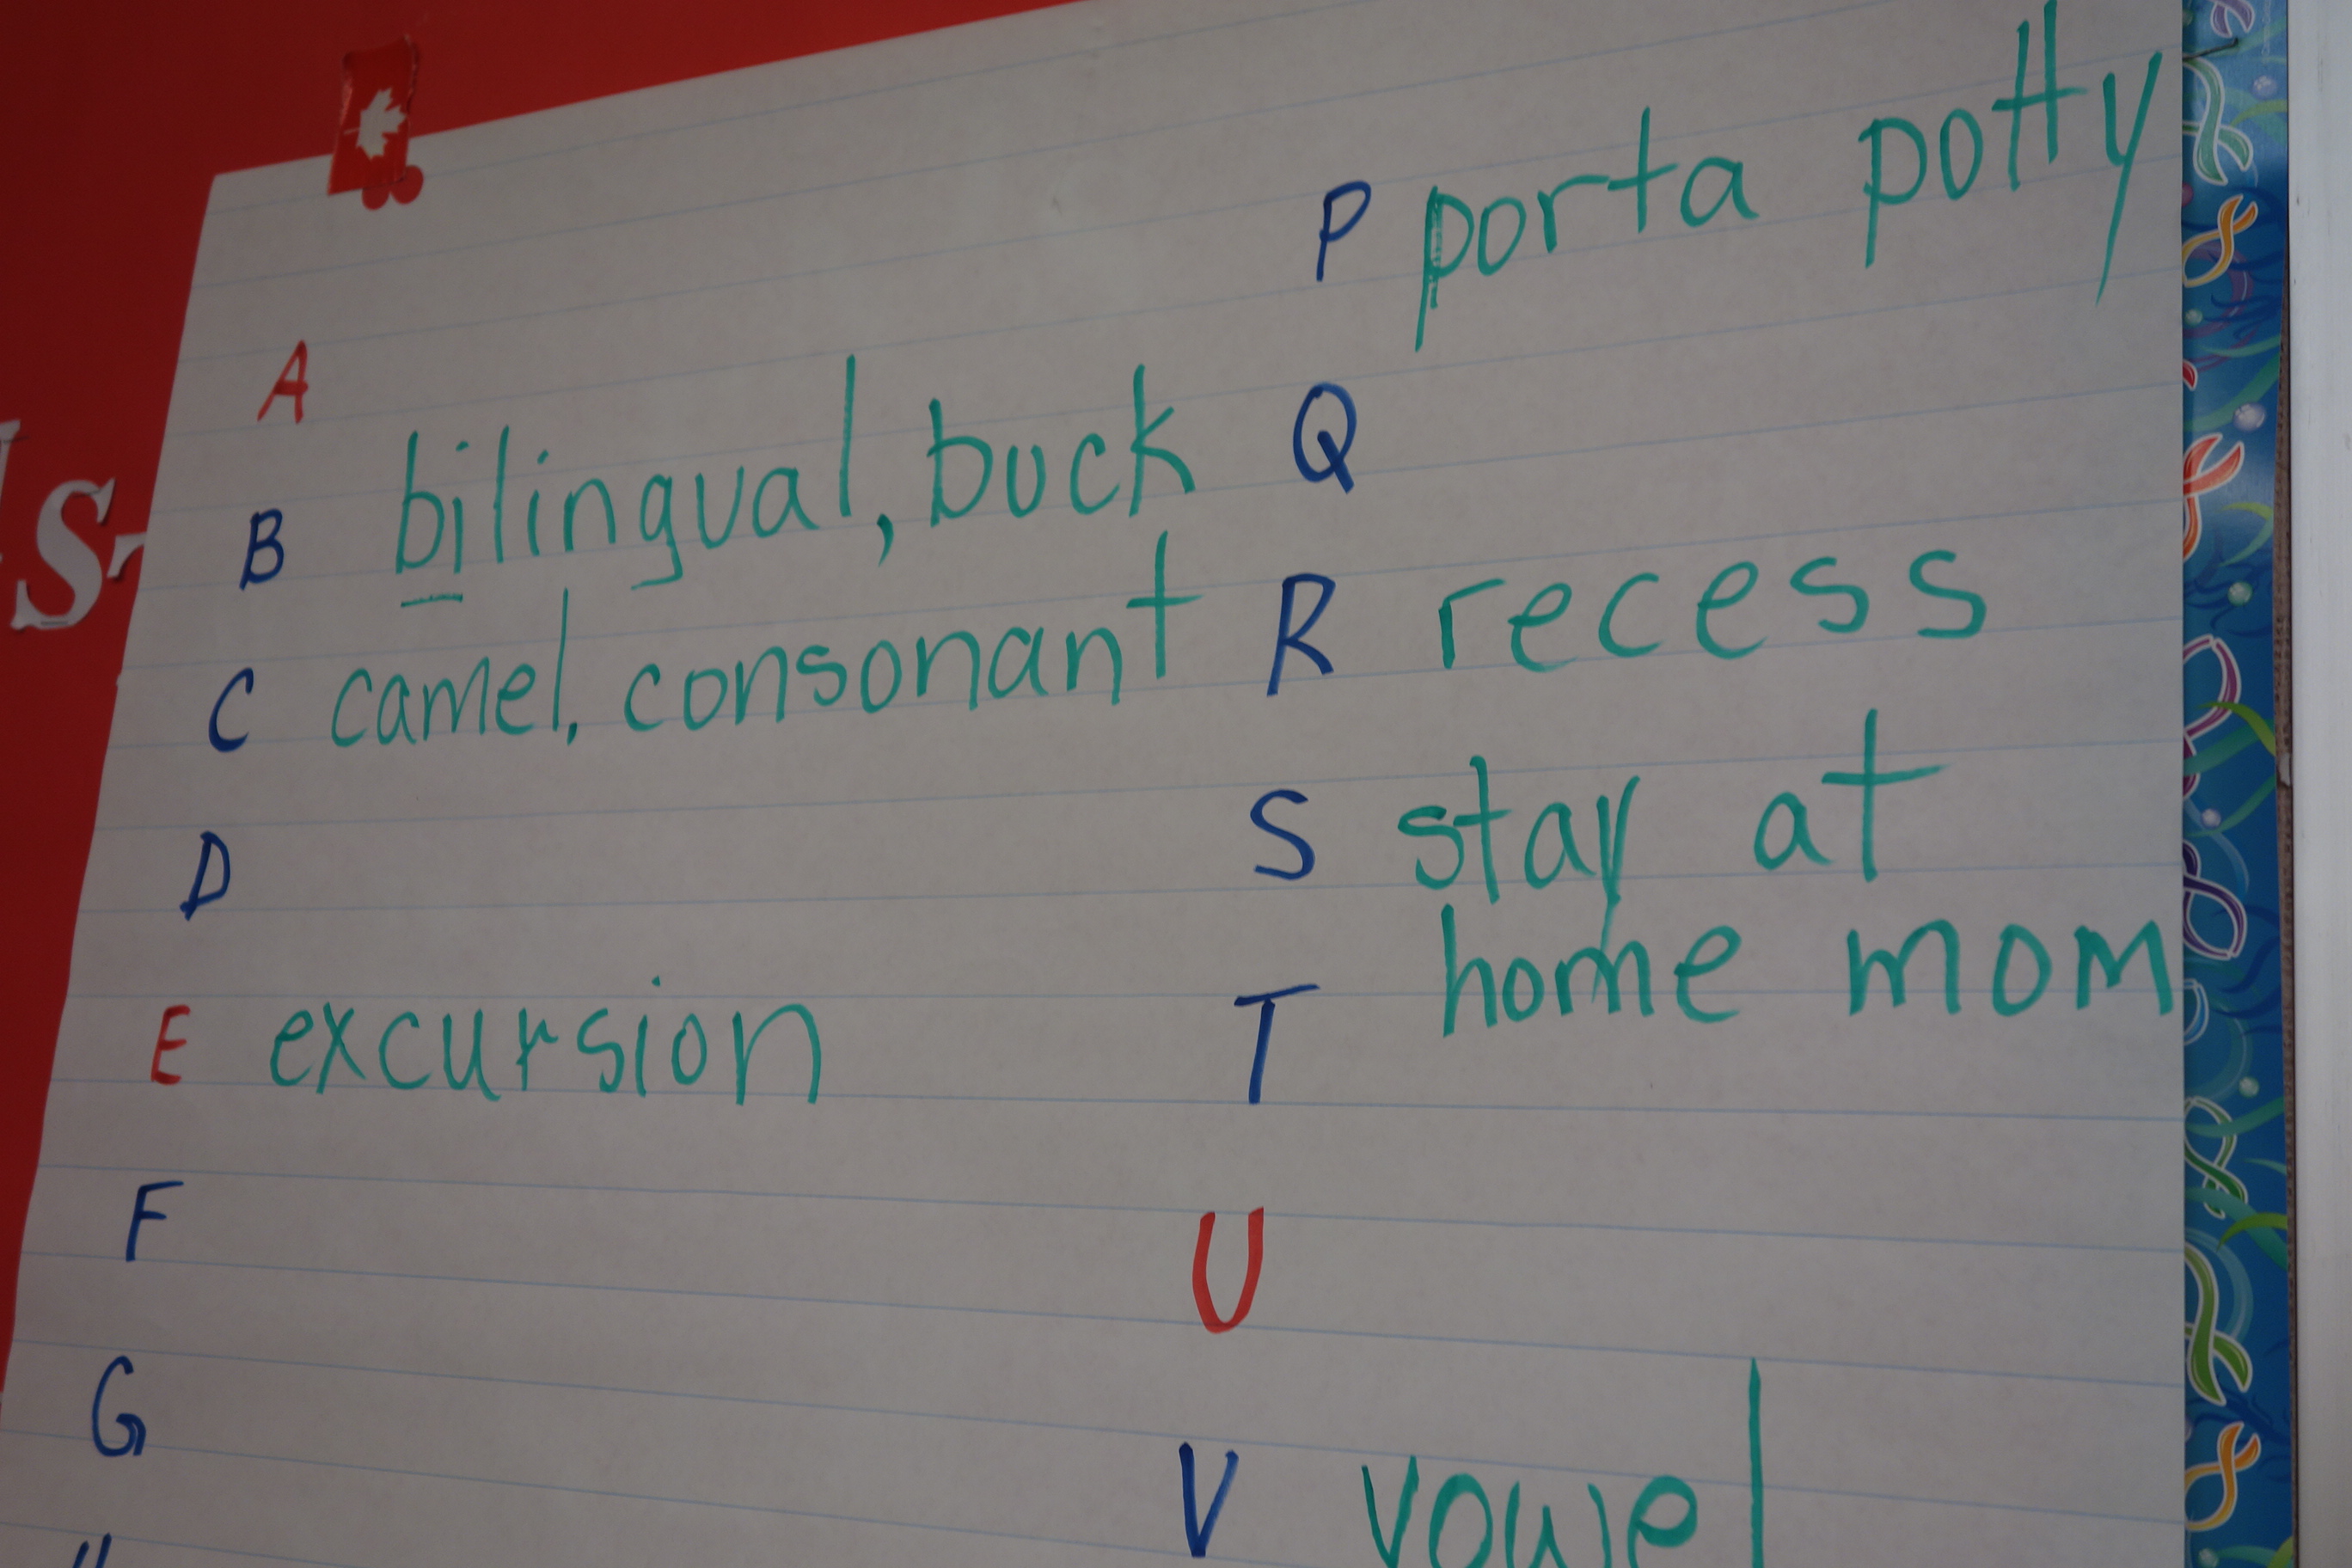 A
B bilingual, buck
C camel, consonant
D
E excursion
F
G
P porta potty
Q
R recess
S stay at
home mom
T
U
V vowel